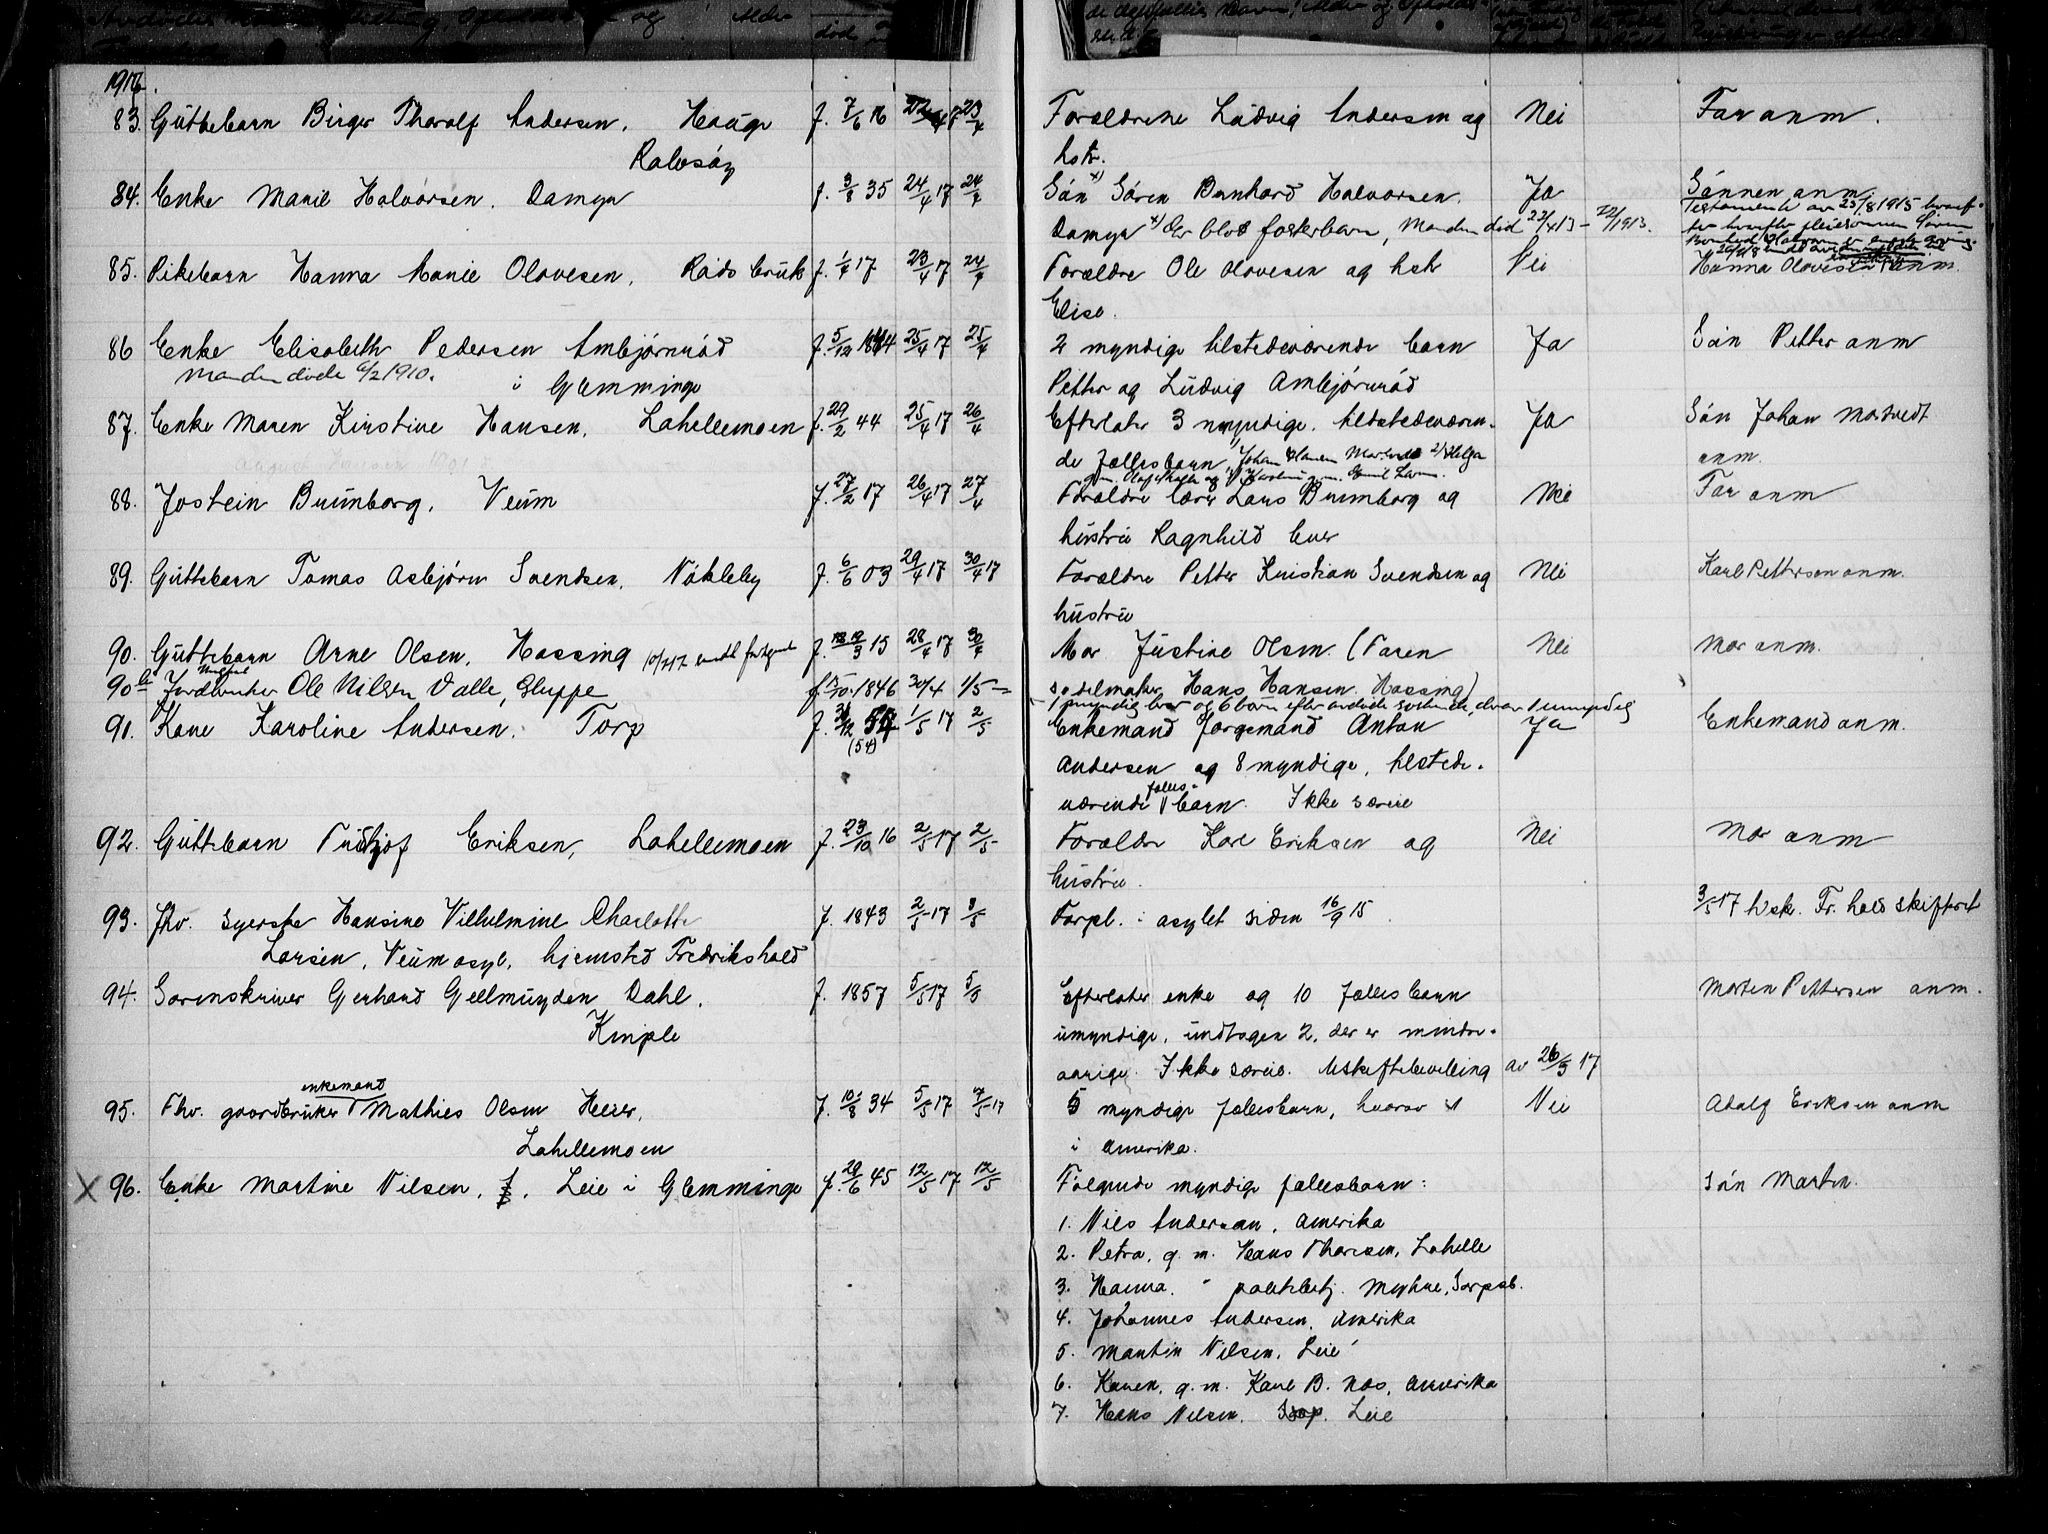 1917.
83. Guttebarn Birger Tharalf Andersen. Hauge f. 7/6 16 22/4 17 23/4 Forældrene Ludvig Andersen og Nei Far anm.
Ralvsöy hstr.
84. Enke Marie Halvorsen. Damyr f. 3/8 35 24/4 17 24/4 Sön x) Sören Bernhard Halvorsen. Ja Sönnen anm.
Testamente av 25/8 1915
Damyr x) Er blot fosterbarn, Manden död 22/4 13 – 22/1913.
85. Pikebarn Hanna Marie Olavesen. Råds bruk f. 1/4 17 23/4 17 24/4 Forældre Ole Olavesen og hstr Nei Hanna Olavesen anm.
Elise.
86 Enke Elisabeth Pedersen Ambjörnröd f. 5/12 1844 25/4 17 25/4 2 myndige tilstedeværende barn Ja Sön Petter anm
Manden döde 6/2 1910. i Glemminge Petter og Ludvig Ambjörnröd
87. Enke Maren Kirstine Hansen. Lahellemoen f. 29/2 44 25/4 17 26/4 Efterlater 3 myndige. tilstedeværen- Ja Sön Johan Mostvedt
August Hansen 1901 de fællesbarn, Johan Hansen 2) Helga anm.
88. Jostein Brumborg, Veum f. 27/2 17 26/4 17 27/4 Forældre lærer Lars Brumborg og Nei Far anm
hustru Ragnhild
89. Guttebarn Tomas Asbjörn Svendsen. Nökleby f. 6/6 03 29/4 17 30/4 17 Forældre Petter Kristian Svendsen og Nei Karl Pettersen anm.
hustru
90. Guttebarn Arne Olsen. Hassing f. 12/3 15 28/4 17 30/4 Mor Justine Olsen. (Faren Nei Mor anm.
90b Jordbruker Ole Nilsen Valle, Gluppe f 1846 30/4 1/5 – sadelmaker Hans Hansen Hassing)
1 myndig bror og 6 barn efter avdöde söskende, derav 1 umyndig
91. Kone Karoline Andersen. Torp f. 54 1/5 17 2/5 Enkemand Forgemand Anton Ja Enkemand anm.
(54)
Andersen og 8 myndige, tilstede-
værende fælles- barn. Ikke særeie
92. Guttebarn Fridtjof Eriksen, Lahellemoen f. 23/10 16 2/5 17 2/5 Forældre Karl Eriksen og Nei Mor anm
hustru.
93. Fhv. syerske Hansine Vilhelmine Charlotte f. 1843 2/5 17 3/5 Forpl. i asylet siden 16/9 15. 3/5 17 t. skr. Fr.hald skifteret
Larsen, Veum asyl, hjemsted Fredrikshald
94. Sorenskriver Gerhard Gellmuyden Dahl. f. 1857 5/5 17 5/5 Efterlater enke og 10 fællesbarn Morten Pettersen anm.
Kniple umyndige, undtagen 2, der er mindre-
aarige. Ikke særeie. Uskiftebevilling av 26/5 17
95. Fhv. gaardbruker enkemand Mathies Olsen Heier, f. 10/8 34 5/5 17 7/5 17 5 myndige fællesbarn, hvorav 1 Nei Adolf Eriksen anm
Lahellemoen i Amerika.
X 96. Enke Martine Nilsen, f. Leie i Glemminge f. 29/6 45 12/5 17 12/5 Fölgende myndige fællesbarn: Sön Martin.
1. Nils Andersen, Amerika
2. Petra, g. m. Hans Thoresen, Lahelle
3. Hanna. " politibetj. Myhre, Sarpsb.
4. Johannes Andersen, Amerika
5. Martin Nilsen, Leie
6. Karen, g. m. Karl B. Næs, Amerika
7. Hans Nilsen. Leie